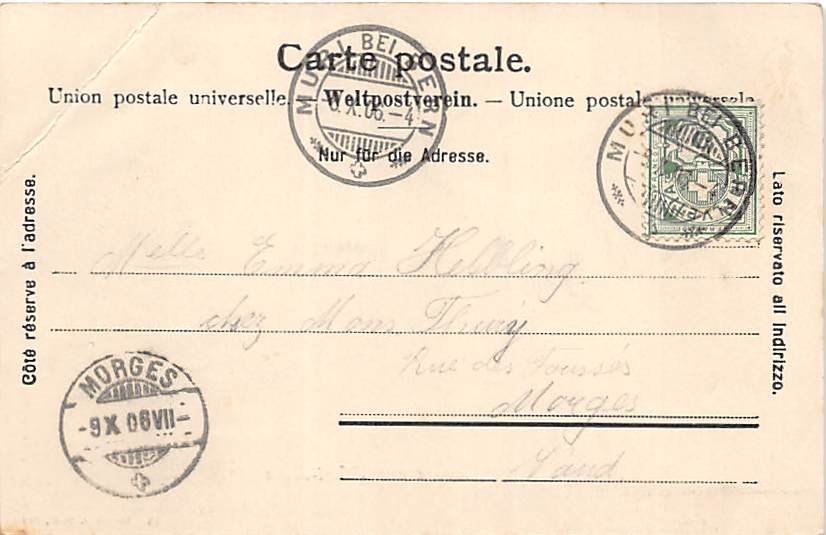 Carte postale.
Union postale universelle. — Weltpostverein. — Unione postale universale
Nur für die Adresse.
MURI BEI BERN
X.06.-4
MURI BEI BERN
Côté réserve à l'adresse.
Lato riservato all Indirizzo.
Melle Emma Helbling
chez Mons Fleury
Rue des Fossés
Morges
Vaud
MORGES
-9 X 06 VII-